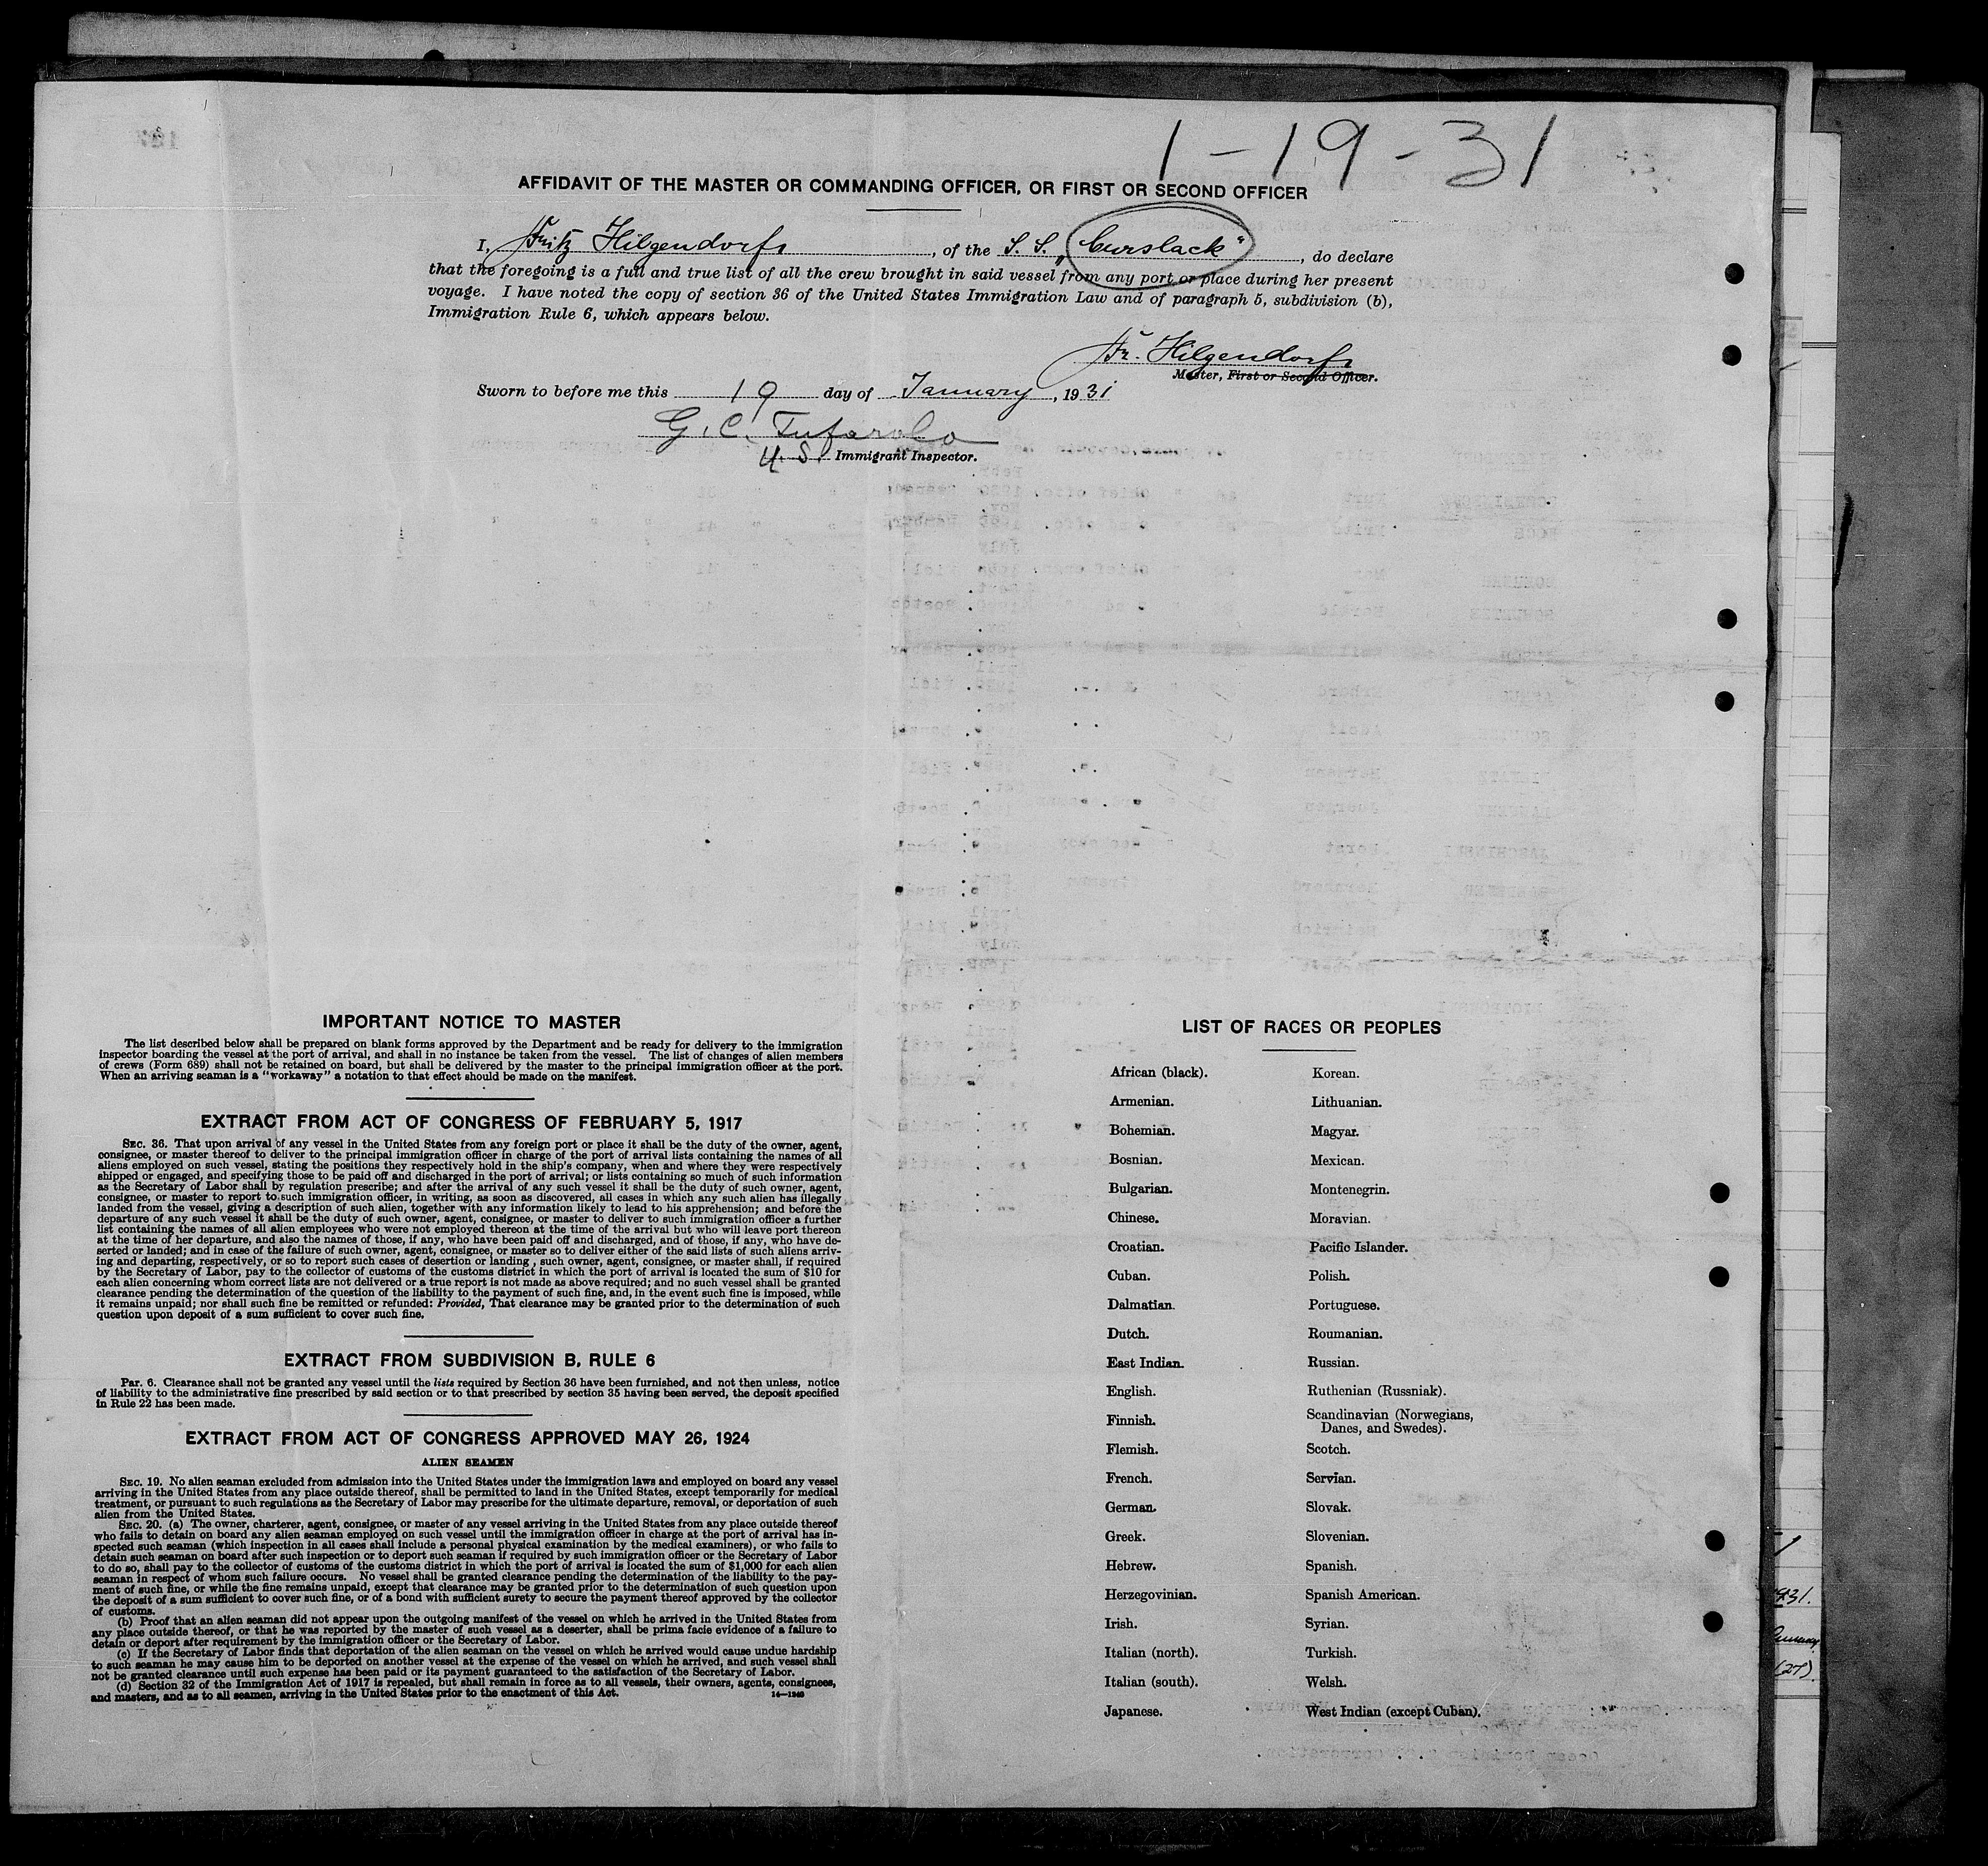 1-19-31
AFFIDAVIT OF THE MASTER OR COMMANDING OFFICER, OR FIRST OR SECOND OFFICER
I, Fritz Hilgendorf, of the S. S. „Curslack“, do declare
that the foregoing is a full and true list of all the crew brought in said vessel from any port or place during her present
voyage. I have noted the copy of section 36 of the United States Immigration Law and of paragraph 5, subdivision (b),
Immigration Rule 6, which appears below.
Fr. Hilgendorf
Master, First or Second Officer.
Sworn to before me this 19 day of January, 1931
G. C. Tufarolo
U. S. Immigrant Inspector.
IMPORTANT NOTICE TO MASTER
The list described below shall be prepared on blank forms approved by the Department and be ready for delivery to the immigration
inspector boarding the vessel at the port of arrival, and shall in no instance be taken from the vessel. The list of changes of alien members
of crews (Form 689) shall not be retained on board, but shall be delivered by the master to the principal immigration officer at the port.
When an arriving seaman is a "workaway" a notation to that effect should be made on the manifest.
EXTRACT FROM ACT OF CONGRESS OF FEBRUARY 5, 1917
SEC. 36. That upon arrival of any vessel in the United States from any foreign port or place it shall be the duty of the owner, agent,
consignee, or master thereof to deliver to the principal immigration officer in charge of the port of arrival lists containing the names of all
aliens employed on such vessel, stating the positions they respectively hold in the ship's company, when and where they were respectively
shipped or engaged, and specifying those to be paid off and discharged in the port of arrival; or lists containing so much of such information
as the Secretary of Labor shall by regulation prescribe; and after the arrival of any such vessel it shall be the duty of such owner, agent,
consignee, or master to report to such immigration officer, in writing, as soon as discovered, all cases in which any such alien has illegally
landed from the vessel, giving a description of such alien, together with any information likely to lead to his apprehension; and before the
departure of any such vessel it shall be the duty of such owner, agent, consignee, or master to deliver to such immigration officer a further
list containing the names of all alien employees who were not employed thereon at the time of the arrival but who will leave port thereon
at the time of her departure, and also the names of those, if any, who have been paid off and discharged, and of those, if any, who have de-
serted or landed; and in case of the failure of such owner, agent, consignee, or master so to deliver either of the said lists of such aliens arriv-
ing and departing, respectively, or so to report such cases of desertion or landing , such owner, agent, consignee, or master shall, if required
by the Secretary of Labor, pay to the collector of customs of the customs district in which the port of arrival is located the sum of $10 for
each alien concerning whom correct lists are not delivered or a true report is not made as above required; and no such vessel shall be granted
clearance pending the determination of the question of the liability to the payment of such fine, and, in the event such fine is imposed, while
it remains unpaid; nor shall such fine be remitted or refunded: Provided, That clearance may be granted prior to the determination of such
question upon deposit of a sum sufficient to cover such fine.
EXTRACT FROM SUBDIVISION B, RULE 6
PAR. 6. Clearance shall not be granted any vessel until the lists required by Section 36 have been furnished, and not then unless, notice
of liability to the administrative fine prescribed by said section or to that prescribed by section 35 having been served, the deposit specified
in Rule 22 has been made.
EXTRACT FROM ACT OF CONGRESS APPROVED MAY 26, 1924
ALIEN SEAMEN
SEC. 19. No alien seaman excluded from admission into the United States under the immigration laws and employed on board any vessel
arriving in the United States from any place outside thereof, shall be permitted to land in the United States, except temporarily for medical
treatment, or pursuant to such regulations as the Secretary of Labor may prescribe for the ultimate departure, removal, or deportation of such
alien from the United States.
SEC. 20. (a) The owner, charterer, agent, consignee, or master of any vessel arriving in the United States from any place outside thereof
who fails to detain on board any alien seaman employed on such vessel until the immigration officer in charge at the port of arrival has in-
spected such seaman (which inspection in all cases shall include a personal physical examination by the medical examiners), or who fails to
detain such seaman on board after such inspection or to deport such seaman if required by such immigration officer or the Secretary of Labor
to do so, shall pay to the collector of customs of the customs district in which the port of arrival is located the sum of $1,000 for each alien
seaman in respect of whom such failure occurs. No vessel shall be granted clearance pending the determination of the liability to the pay-
ment of such fine, or while the fine remains unpaid, except that clearance may be granted prior to the determination of such question upon
the deposit of a sum sufficient to cover such fine, or of a bond with sufficient surety to secure the payment thereof approved by the collector
of customs.
(b) Proof that an alien seaman did not appear upon the outgoing manifest of the vessel on which he arrived in the United States from
any place outside thereof, or that he was reported by the master of such vessel as a deserter, shall be prima facie evidence of a failure to
detain or deport after requirement by the immigration officer or the Secretary of Labor.
(c) If the Secretary of Labor finds that deportation of the alien seaman on the vessel on which he arrived would cause undue hardship
to such seaman he may cause him to be deported on another vessel at the expense of the vessel on which he arrived, and such vessel shall
not be granted clearance until such expense has been paid or its payment guaranteed to the satisfaction of the Secretary of Labor.
(d) Section 32 of the Immigration Act of 1917 is repealed, but shall remain in force as to all vessels, their owners, agents, consignees,
and masters, and as to all seamen, arriving in the United States prior to the enactment of this Act.
LIST OF RACES OR PEOPLES
African (black).
Armenian.
Bohemian.
Bosnian.
Bulgarian.
Chinese.
Croatian.
Cuban.
Dalmatian.
Dutch.
East Indian.
English.
Finnish.
Flemish.
French.
German.
Greek.
Hebrew.
Herzegovinian.
Irish.
Italian (north).
Italian (south).
Japanese.
Korean.
Lithuanian.
Magyar.
Mexican.
Montenegrin.
Moravian.
Pacific Islander.
Polish.
Portuguese.
Roumanian.
Russian.
Ruthenian (Russniak).
Scandinavian (Norwegians,
Danes, and Swedes).
Scotch.
Servian.
Slovak.
Slovenian.
Spanish.
Spanish American.
Syrian.
Turkish.
Welsh.
West Indian (except Cuban).